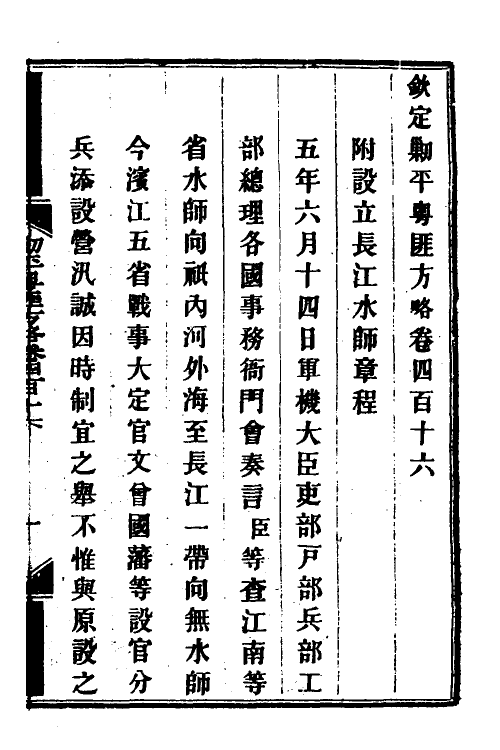 欽定勦平粵匪方略卷四百十六
附設立長江水師章程
五年六月十四日軍機大臣吏部戸部兵部工
部總理各國事務衙門會奏言臣等查江南等
省水師向祇內河外海至長江一帶向無水師
今濱江五省戰事大定官文曾國藩等設官分
兵添設營汛誠因時制宜之舉不惟與原設之